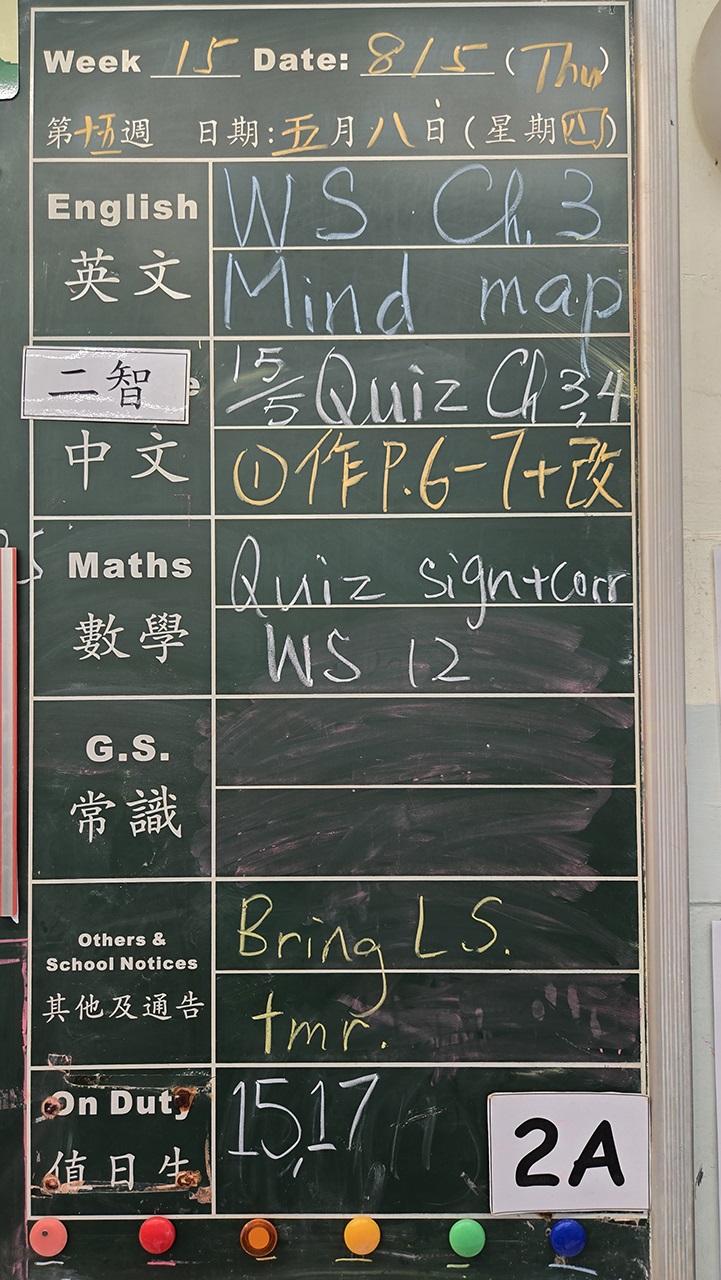 Week 15 Date: 8/5 (Thu)
第十五週 日期:五月八日(星期四)
English WS Ch. 3
英文 Mind map
二智 15/5 Quiz Ch 3,4
中文 ①作P.6-7+改
Maths Quiz sign+corr
數學 WS 12
G.S.
常識
Others &
School Notices
其他及通告
Bring L.S.
tmr.
On Duty 15,17
值日生
2A